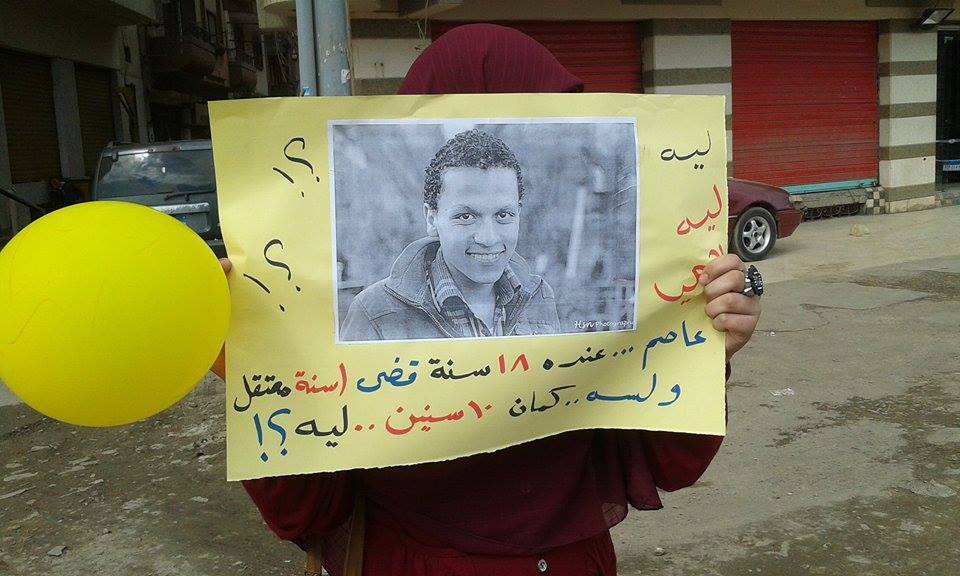 ليه
ليه
؟!
؟!
Hsn Photography
عاصم ... عنده ١٨ سنة قضى ١ سنة معتقل
ولسه .. كمان ١٠ سنين .. ليه ؟!